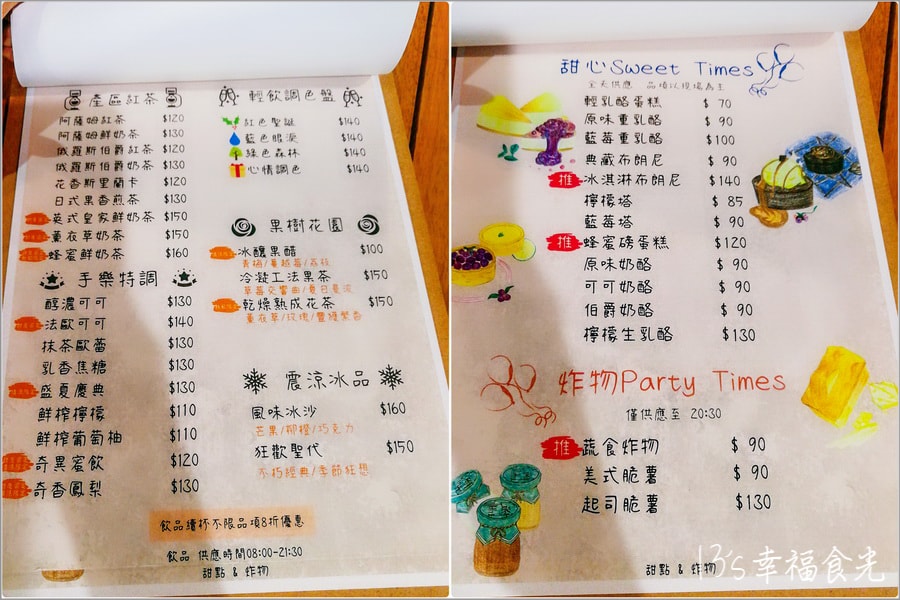 產區紅茶
阿薩姆紅茶 $120
阿薩姆鮮奶茶 $130
俄羅斯伯爵紅茶 $120
俄羅斯伯爵奶茶 $130
花香斯里蘭卡 $120
日式果香煎茶 $130
英式皇家鮮奶茶 $150
薰衣草奶茶 $150
蜂蜜鮮奶茶 $160
手樂特調
醇濃可可 $130
法歐可可 $140
抹茶歐蕾 $130
乳香焦糖 $130
盛夏慶典 $130
鮮榨檸檬 $110
鮮榨葡萄柚 $110
奇異蜜飲 $120
奇香鳳梨 $130
輕飲調色盤
紅色聖誕 $140
藍色眼淚 $140
綠色森林 $140
心情調色 $140
果樹花園
冰釀果醋 $100
青梅/蔓越莓/荔枝
冷凝工法果茶 $150
草莓交響曲/夏日曼波
乾燥熟成花茶 $150
薰衣草/玫瑰/豐穗繁香
震涼冰品
風味冰沙 $160
芒果/柳橙/巧克力
狂歡聖代 $150
不朽經典/季節狂想
飲品續杯不限品項8折優惠
飲品 供應時間08:00-21:30
甜點 & 炸物
甜心Sweet Times
全天供應 品項以現場為主
輕乳酪蛋糕 $ 70
原味重乳酪 $ 90
藍莓重乳酪 $100
典藏布朗尼 $ 90
推 冰淇淋布朗尼 $140
檸檬塔 $ 85
藍莓塔 $ 90
推 蜂蜜磅蛋糕 $120
原味奶酪 $ 90
可可奶酪 $ 90
伯爵奶酪 $ 90
檸檬生乳酪 $130
炸物Party Times
僅供應至 20:30
推 蔬食炸物 $ 90
美式脆薯 $ 90
起司脆薯 $130
甜點 & 炸物
13's幸福食光